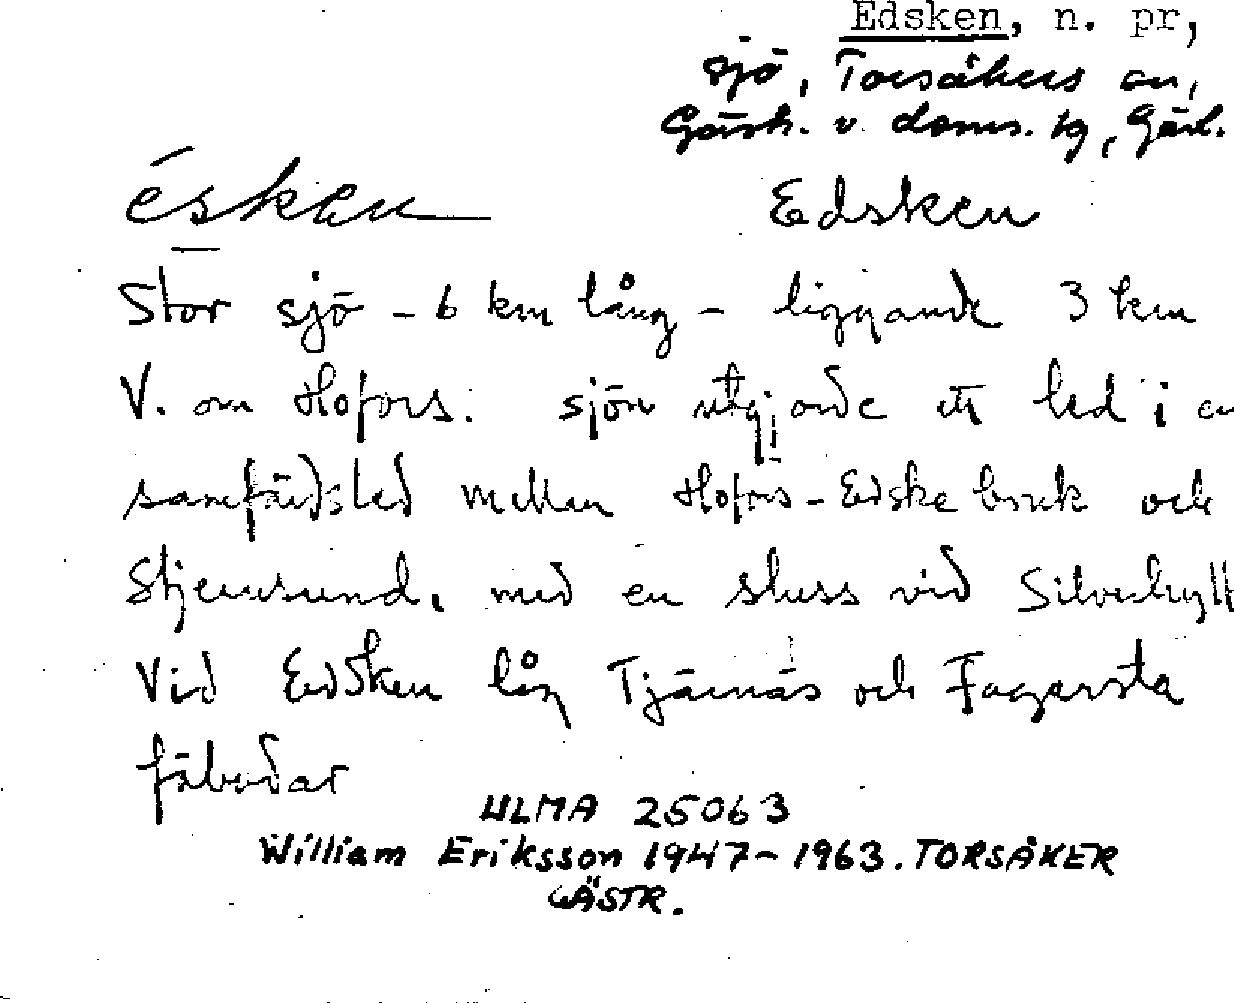 Edsken, n. pr,
sjö, Torsåkers sn,
Gästr. v. doms. tg, Gävl.
ésken Edsken
Stor sjö - 6 km lång - liggande 3 km
V. om Hofors. sjön utgjorde ett led i en
samfärdsled mellan Hofors - Edske bruk och
Stjernsund, med en sluss vid Silverhytt
Vid Edsken låg Tjärnäs och Fagersta
fäbodar
ULMA 25063
William Eriksson 1947-1963. TORSÅKER
GÄSTR.